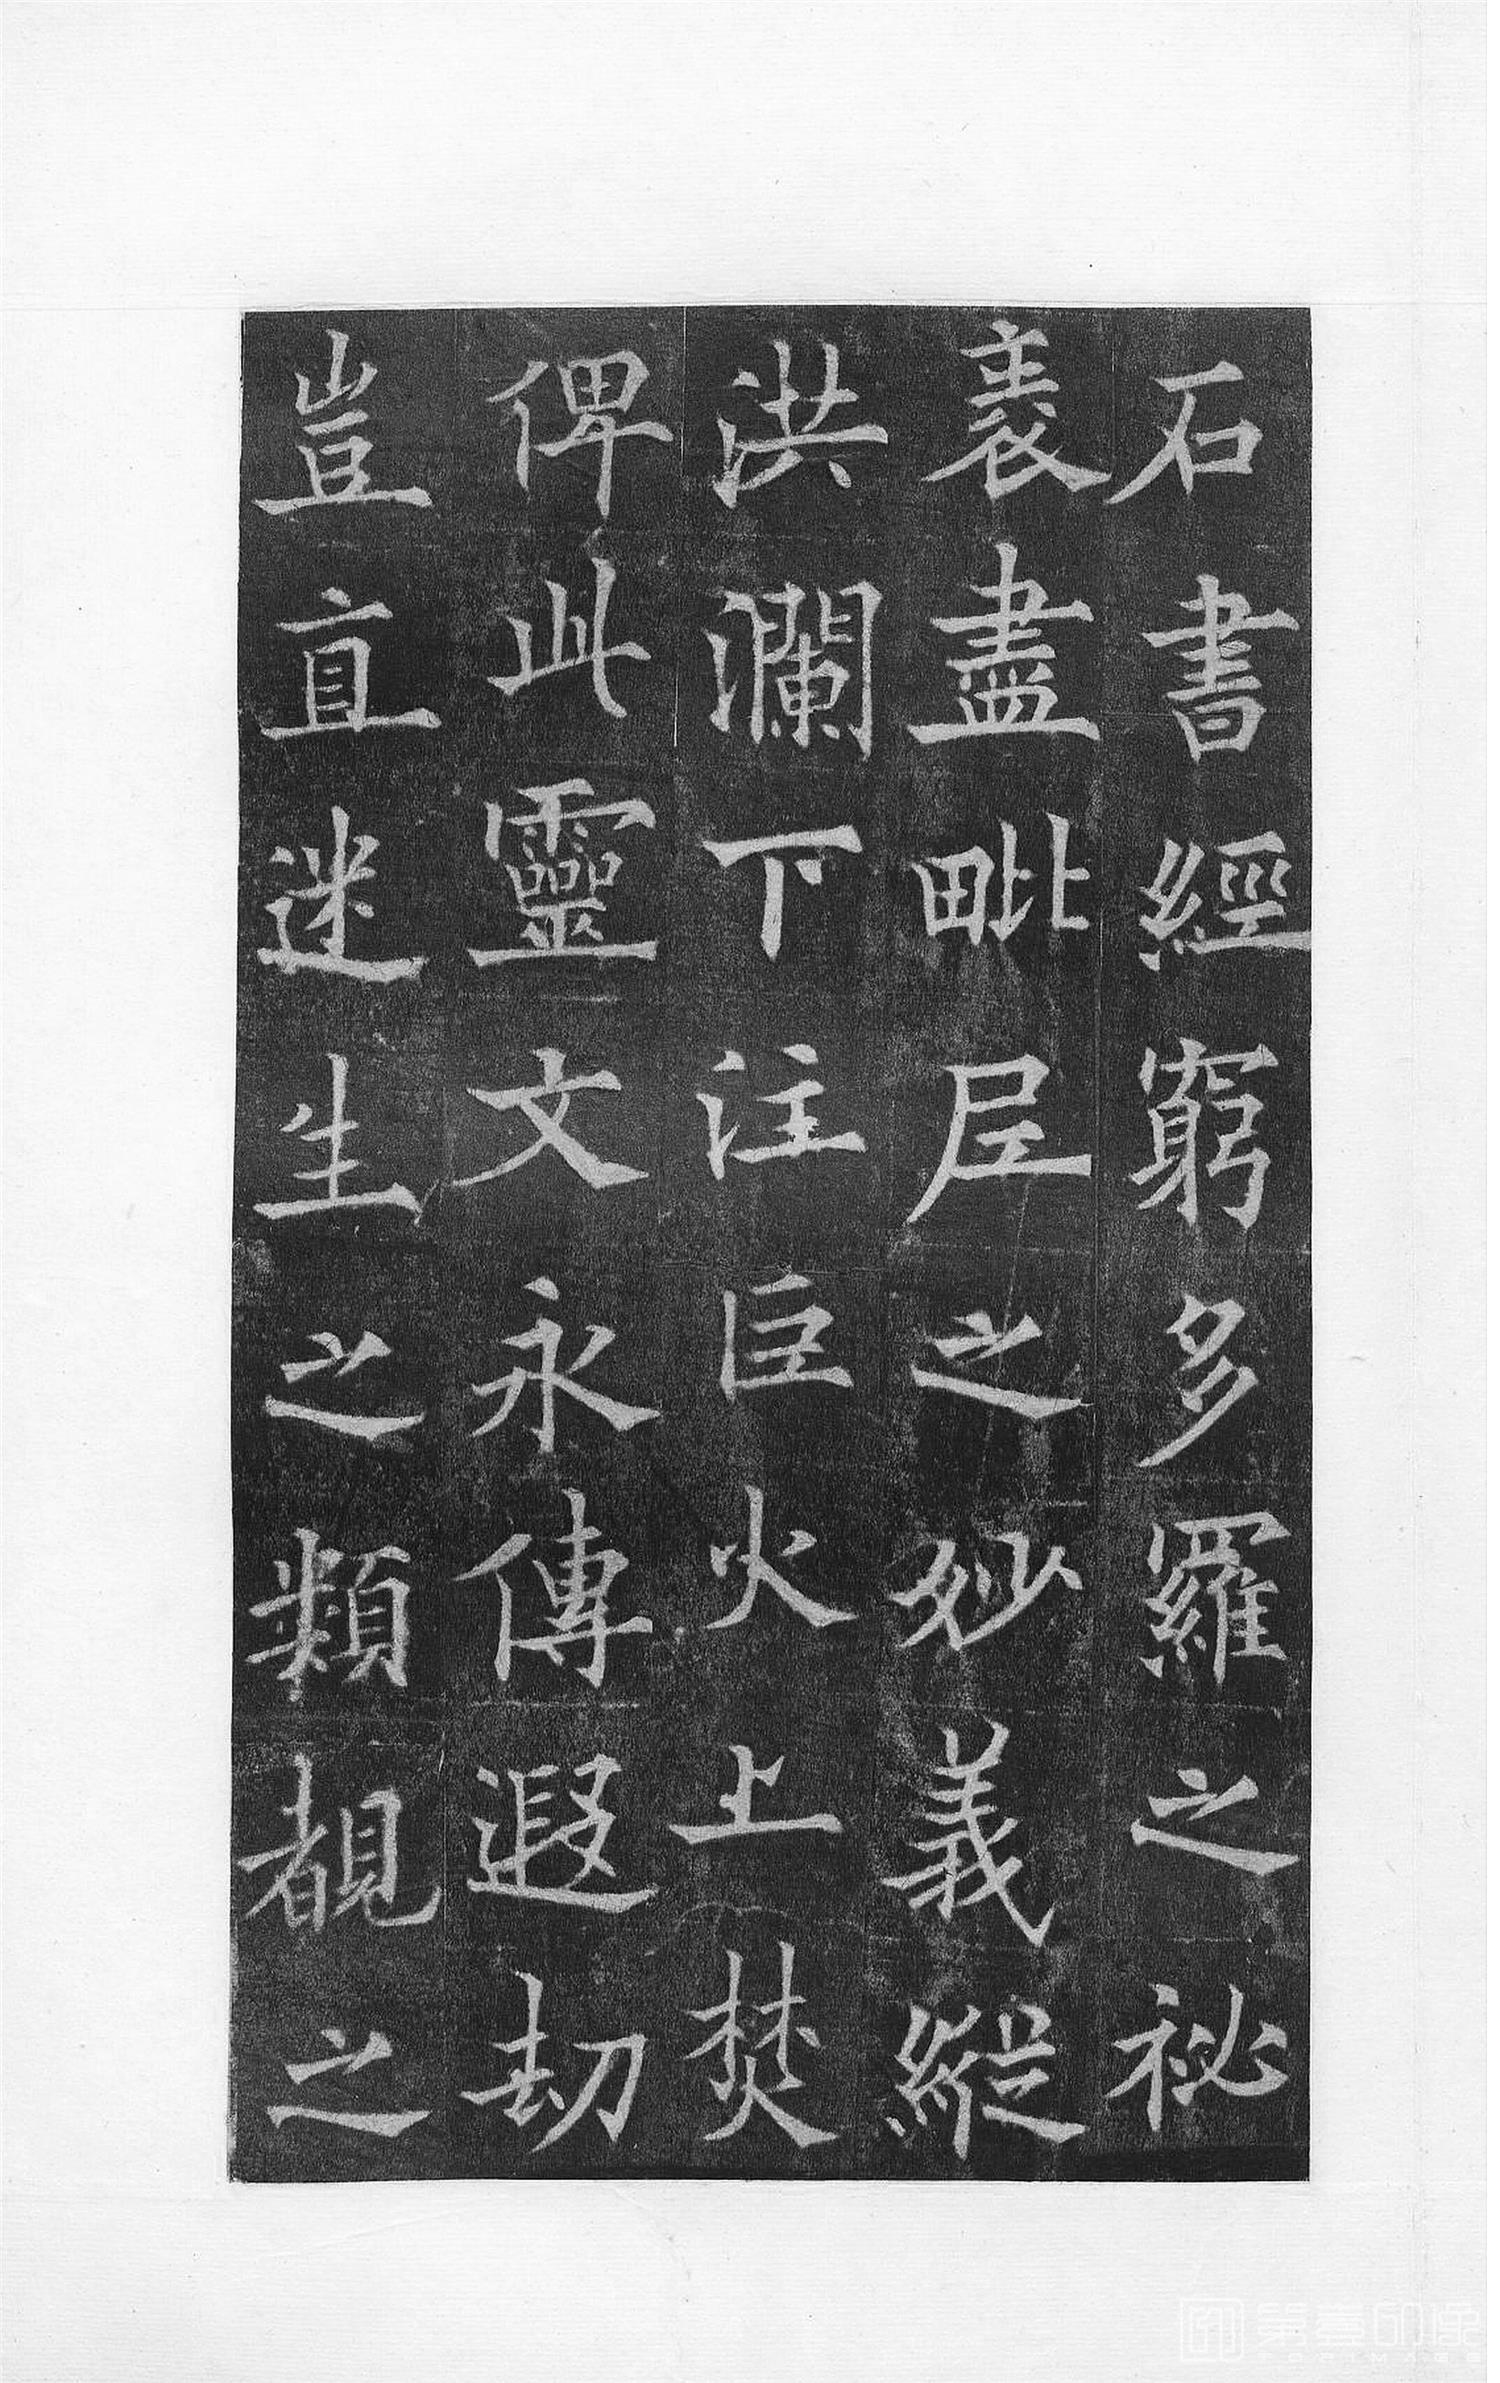 石書經窮多羅之祕
裹盡毗𡰱之妙義縱
洪瀾下注巨火上焚
俾此靈文永傳遐劫
豈直迷生之類覩之
第壹印像
TOPIMAGE